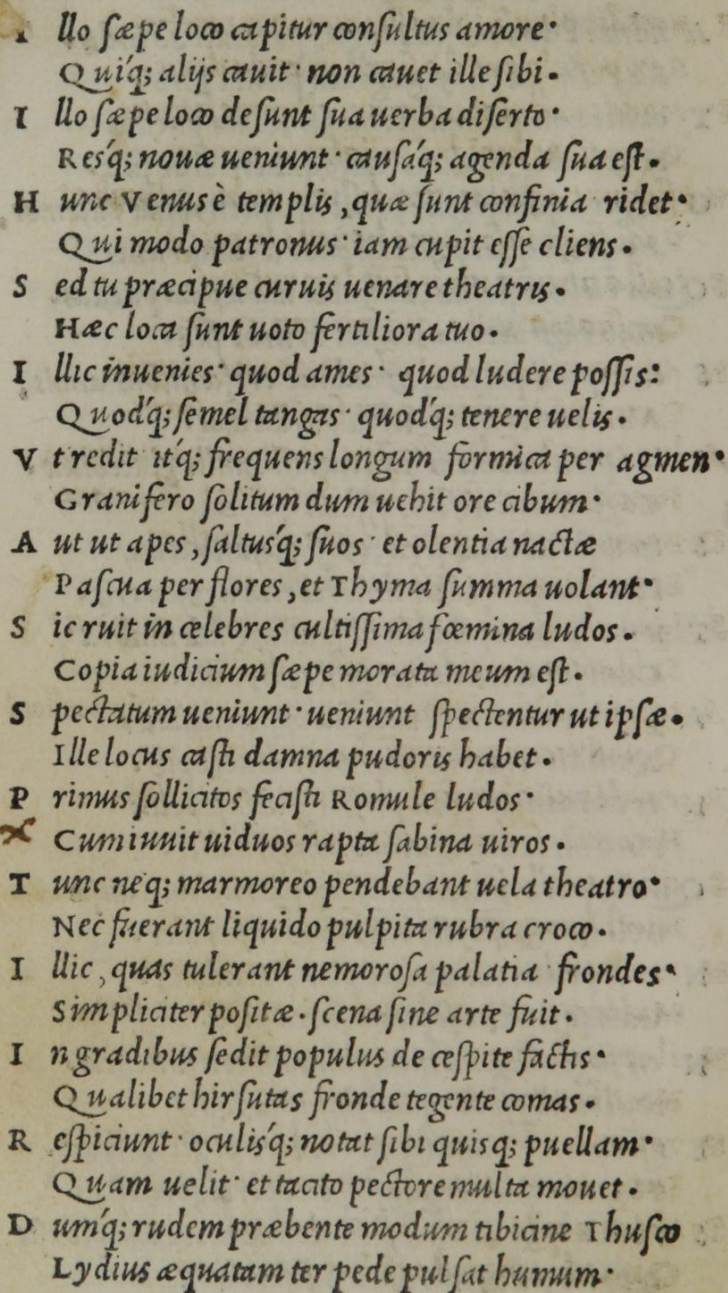 I llo sæpe loco capitur consultus amore·
Quiq; alijs cauit· non cauet ille sibi.
I llo sæpe loco desunt sua uerba diserto·
Resq́; nouæ ueniunt· causaq́; agenda sua est.
H unc Venus è templis, quæ sunt confinia ridet·
Qui modo patronus· iam cupit esse cliens.
S ed tu præcipue curuis uenare theatris.
Hæc loca sunt uoto fertiliora tuo.
I llic inuenies· quod ames· quod ludere possis:
Quodq́; semel tangas· quodq́; tenere uelis.
V t redit itq́; frequens longum formica per agmen·
Granifero solitum dum uehit ore cibum·
A ut ut apes, saltusq́; suos· et olentia nactæ
Pascua per flores, et Thyma summa uolant·
S ic ruit in celebres cultissima fœmina ludos.
Copia iudicium sæpe morata meum est.
S pectatum ueniunt· ueniunt spectentur ut ipsæ.
Ille locus casti damna pudoris habet.
P rimus sollicitos fecisti Romule ludos·
Cum iuuit uiduos rapta sabina uiros.
T unc neq; marmoreo pendebant uela theatro·
Nec fuerant liquido pulpita rubra croco.
I llic, quas tulerant nemorosa palatia frondes·
Simpliciter positæ. scena sine arte fuit.
I n gradibus sedit populus de cespite factis·
Qualibet hirsutas fronde tegente comas.
R espiciunt· oculisq́; notat sibi quisq; puellam·
Quam uelit· et tacito pectore multa mouet.
D umq́; rudem præbente modum tibicine Thusco
Lydius æquatam ter pede pulsat humum·